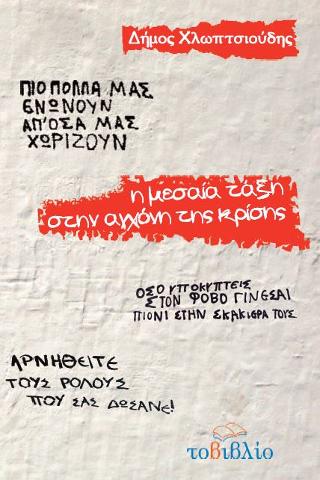 Δήμος Χλωπτσιούδης
ΠΙΟ ΠΟΛΛΑ ΜΑΣ
ΕΝΩΝΟΥΝ
ΑΠ'ΟΣΑ ΜΑΣ
ΧΩΡΙΖΟΥΝ
η μεσαία τάξη
στην αγχόνη της κρίσης
ΟΣΟ ΥΠΟΚΥΠΤΕΙΣ
ΣΤΟΝ ΦΟΒΟ ΓΙΝΕΣΑΙ
ΠΙΟΝΙ ΣΤΗΝ ΣΚΑΚΙΕΡΑ ΤΟΥΣ
ΑΡΝΗΘΕΙΤΕ
ΤΟΥΣ ΡΟΛΟΥΣ
ΠΟΥ ΣΑΣ ΔΩΣΑΝΕ!
τοβιβλίο